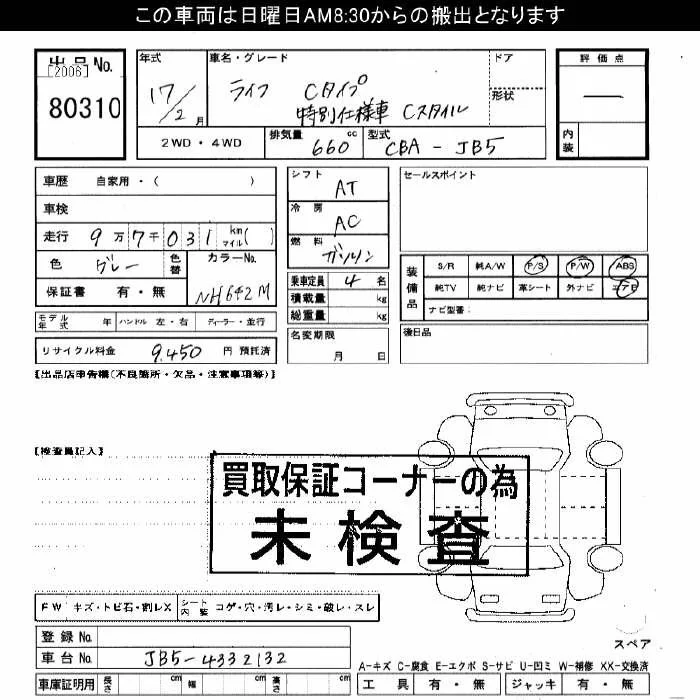 この車両は日曜日AM8:30からの搬出となります
出品No.
[2006]
80310
年式 車名・グレード ドア 評価点
17/2月 ライフ Cタイプ 形状 ―
特別仕様車 Cスタイル
2WD・4WD 排気量 660 cc 型式 CBA-JB5 内装
車歴 自家用・( ) シフト AT セールスポイント
車検 冷房 AC
走行 9万7千031 km マイル( ) 燃料 ガソリン
色 グレー 色替 カラーNo. NH642M
保証書 有・無
乗車定員 4 名
積載量 kg
総重量 kg
装備品 S/R 純A/W P/S P/W ABS
純TV 純ナビ 革シート 外ナビ エアB
ナビ型番:
モデル年式 年 ハンドル 左・右 ディーラー・並行 名変期限 月 日 後日品
リサイクル料金 9,450 円 預託済
【出品店申告欄(不良箇所・欠品・注意事項等)】
【検査員記入】
買取保証コーナーの為
未検査
FW キズ・トビ石・割レX シート内装 コゲ・穴・汚レ・シミ・破レ・スレ
登録No.
スペア
車台No. JB5-4332132
A-キズ C-腐食 E-エクボ S-サビ U-凹ミ W-補修 XX-交換済
車庫証明用 長さ cm 幅 cm 高さ cm 工具 有・無 ジャッキ 有・無